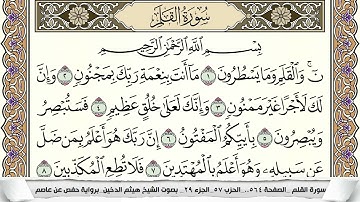 سُورَةُ القَلَمِ
بِسْمِ اللَّهِ الرَّحْمَٰنِ الرَّحِيمِ
نٓ ۚ وَالْقَلَمِ وَمَا يَسْطُرُونَ ١ مَا أَنتَ بِنِعْمَةِ رَبِّكَ بِمَجْنُونٍ ٢ وَإِنَّ
لَكَ لَأَجْرًا غَيْرَ مَمْنُونٍ ٣ وَإِنَّكَ لَعَلَىٰ خُلُقٍ عَظِيمٍ ٤ فَسَتُبْصِرُ
وَيُبْصِرُونَ ٥ بِأَييِّكُمُ الْمَفْتُونُ ٦ إِنَّ رَبَّكَ هُوَ أَعْلَمُ بِمَن ضَلَّ
عَن سَبِيلِهِ وَهُوَ أَعْلَمُ بِالْمُهْتَدِينَ ٧ فَلَا تُطِعِ الْمُكَذِّبِينَ ٨
سورة القلم _الصفحة ٥٦٤.. الحزب ٥٧_الجزء ٢٩.. بصوت الشيخ هيثم الدخين_برواية حفص عن عاصم